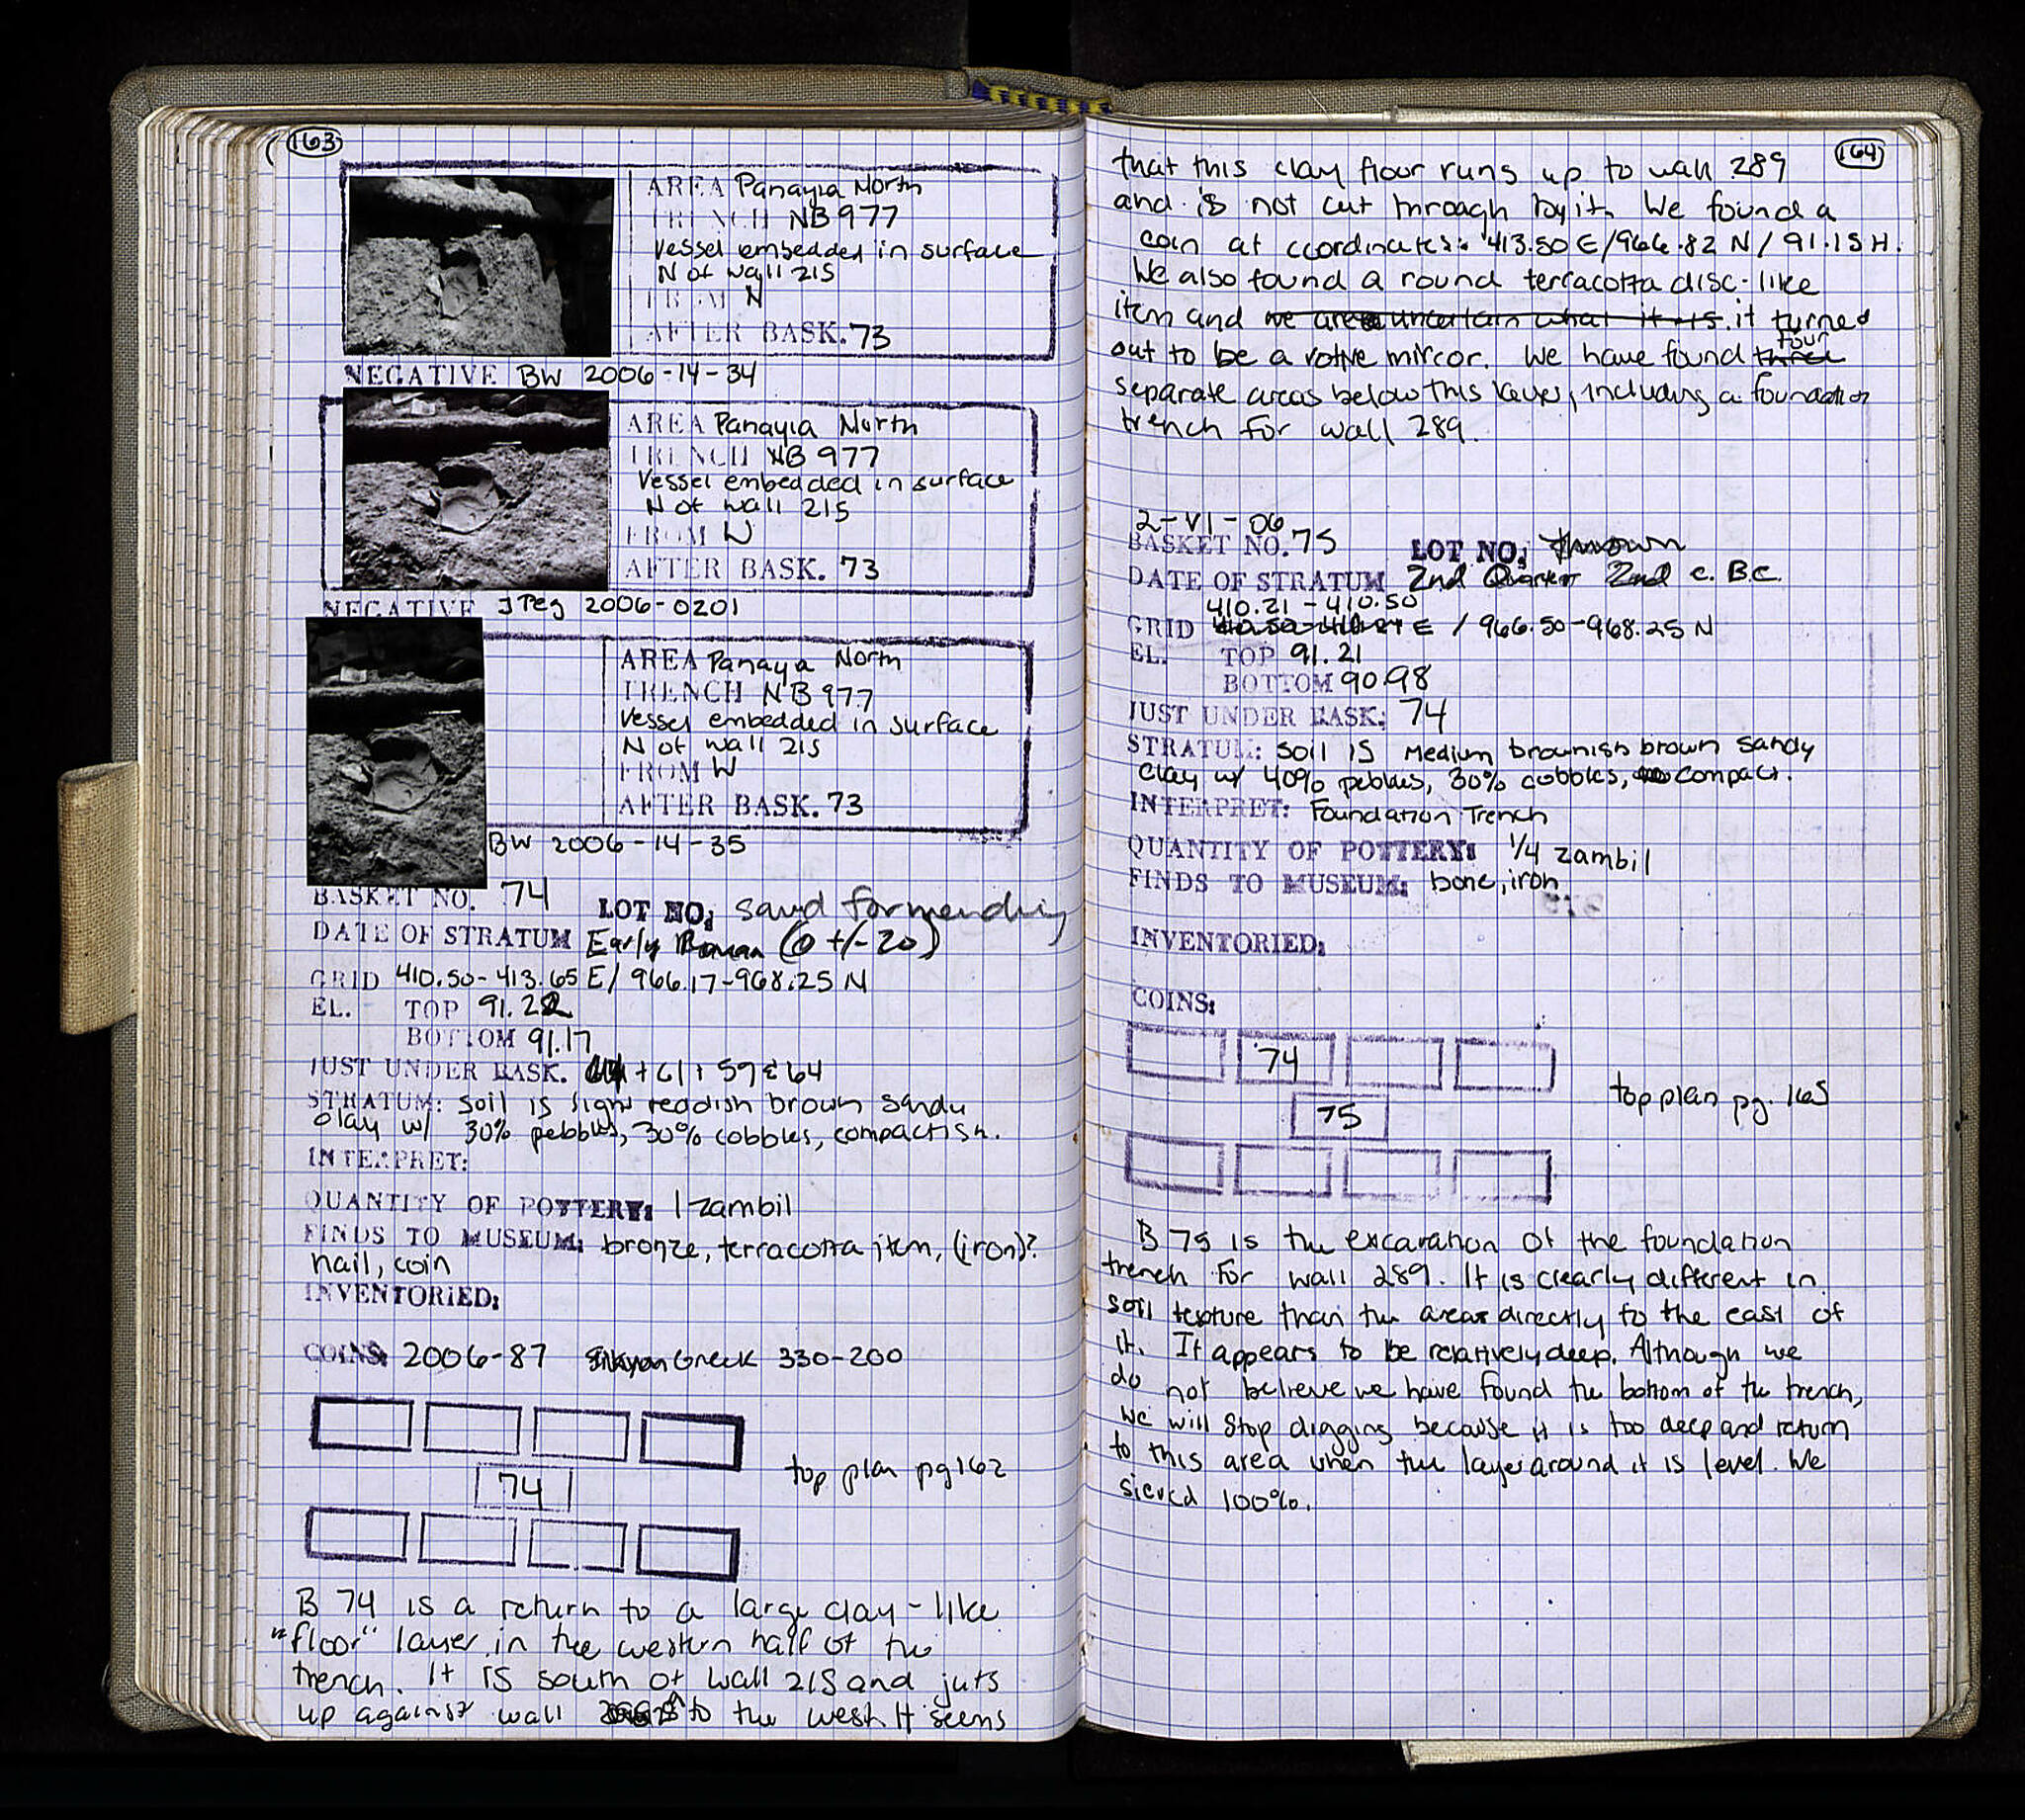 163
AREA Panayia North
TRENCH NB 977
Vessel embedded in surface
N of wall 215
FROM N
AFTER BASK. 73
NEGATIVE BW 2006-14-34
AREA Panayia North
TRENCH NB 977
Vessel embedded in surface
N of wall 215
FROM W
AFTER BASK. 73
NEGATIVE JPeg 2006-0201
AREA Panaya North
TRENCH NB 977
Vessel embedded in surface
N of wall 215
FROM W
AFTER BASK. 73
BW 2006-14-35
BASKET NO. 74 LOT NO. saved for mending
DATE OF STRATUM Early Roman (0 +/- 20)
GRID 410.50-413.65 E/ 966.17-968.25 N
EL. TOP 91.22
BOTTOM 91.17
JUST UNDER BASK. + 61, 59 & 64
STRATUM: soil is light reddish brown sandy
clay w/ 30% pebbles, 30% cobbles, compactish.
INTERPRET:
QUANTITY OF POTTERY: 1 zambil
FINDS TO MUSEUM: bronze, terracotta item, (iron)?
nail, coin
INVENTORIED:
COINS: 2006-87 Sikyon Greek 330-200
74
top plan pg 162
B 74 is a return to a large clay-like
"floor" layer in the western half of the
trench. It is south of wall 215 and juts
up against wall to the west. It seems
164
that this clay floor runs up to wall 289
and is not cut through by it. We found a
coin at coordinates: 413.50 E/966.82 N/ 91.15 H.
We also found a round terracotta disc-like
item and we are uncertain what it is. it turned
out to be a votive mirror. We have found three four
separate areas below this layer, including a foundation
trench for wall 289.
2-VI-06
BASKET NO. 75 LOT NO. thrown
DATE OF STRATUM 2nd Quarter 2nd c. B.C.
410.21-410.50
GRID E / 966.50-968.25 N
EL. TOP 91.21
BOTTOM 90.98
JUST UNDER BASK: 74
STRATUM: soil is medium brownish brown sandy
clay w/ 40% pebbles, 30% cobbles, compact.
INTERPRET: Foundation Trench
QUANTITY OF POTTERY: 1/4 zambil
FINDS TO MUSEUM: bone, iron
INVENTORIED:
COINS:
74
75
top plan pg. 165
B 75 is the excavation of the foundation
trench for wall 289. It is clearly different in
soil texture than the areas directly to the east of
it. It appears to be relatively deep. Although we
do not believe we have found the bottom of the trench,
we will stop digging because it is too deep and return
to this area when the layer around it is level. We
sieved 100%.